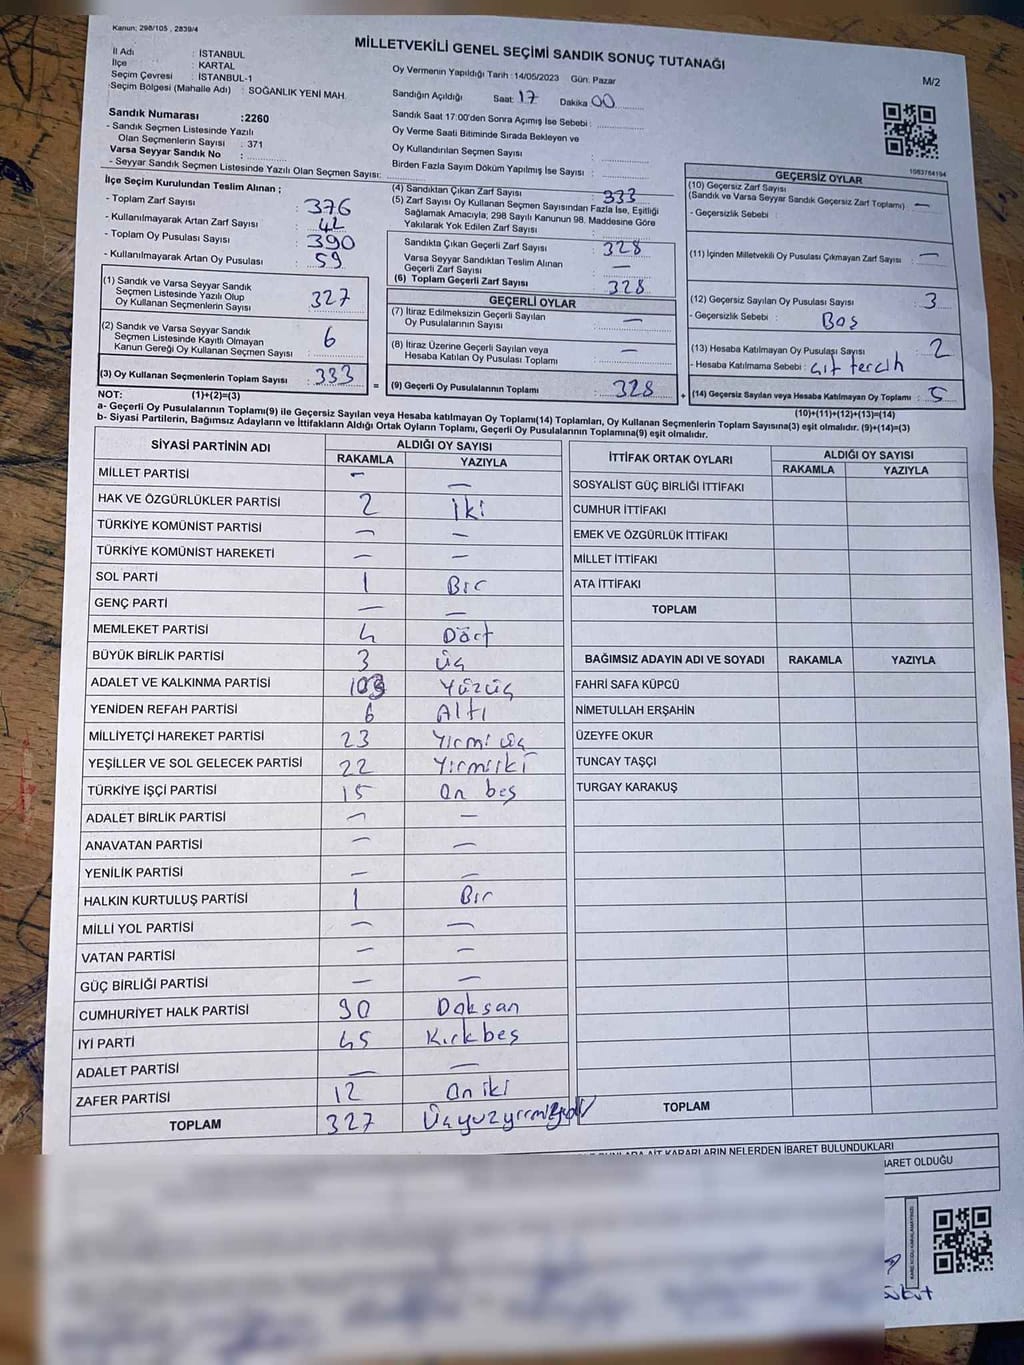 Kanun: 298/105 , 2839/4
MİLLETVEKİLİ GENEL SEÇİMİ SANDIK SONUÇ TUTANAĞI
M/2
İl Adı : İSTANBUL
İlçe : KARTAL
Seçim Çevresi : İSTANBUL-1
Seçim Bölgesi (Mahalle Adı) : SOĞANLIK YENİ MAH.
Oy Vermenin Yapıldığı Tarih : 14/05/2023 Gün: Pazar
Sandığın Açıldığı Saat: 17 Dakika 00
Sandık Saat 17:00'den Sonra Açımış İse Sebebi :
Oy Verme Saati Bitiminde Sırada Bekleyen ve
Oy Kullandırılan Seçmen Sayısı :
Birden Fazla Sayım Döküm Yapılmış İse Sayısı :
Sandık Numarası :2260
- Sandık Seçmen Listesinde Yazılı
Olan Seçmenlerin Sayısı : 371
Varsa Seyyar Sandık No :
- Seyyar Sandık Seçmen Listesinde Yazılı Olan Seçmen Sayısı:
1583764194
İlçe Seçim Kurulundan Teslim Alınan ;
- Toplam Zarf Sayısı : 376
- Kullanılmayarak Artan Zarf Sayısı : 42
- Toplam Oy Pusulası Sayısı : 390
- Kullanılmayarak Artan Oy Pusulası : 59
(1) Sandık ve Varsa Seyyar Sandık
Seçmen Listesinde Yazılı Olup
Oy Kullanan Seçmenlerin Sayısı : 327
(2) Sandık ve Varsa Seyyar Sandık
Seçmen Listesinde Kayıtlı Olmayan
Kanun Gereği Oy Kullanan Seçmen Sayısı : 6
(3) Oy Kullanan Seçmenlerin Toplam Sayısı : 333
(4) Sandıktan Çıkan Zarf Sayısı : 333
(5) Zarf Sayısı Oy Kullanan Seçmen Sayısından Fazla İse, Eşitliği
Sağlamak Amacıyla, 298 Sayılı Kanunun 98. Maddesine Göre
Yakılarak Yok Edilen Zarf Sayısı :
Sandıkta Çıkan Geçerli Zarf Sayısı : 328
Varsa Seyyar Sandıktan Teslim Alınan
Geçerli Zarf Sayısı : —
(6) Toplam Geçerli Zarf Sayısı : 328
GEÇERLİ OYLAR
(7) İtiraz Edilmeksizin Geçerli Sayılan
Oy Pusulalarının Sayısı : —
(8) İtiraz Üzerine Geçerli Sayılan veya
Hesaba Katılan Oy Pusulası Toplamı : —
= (9) Geçerli Oy Pusulalarının Toplamı : 328
GEÇERSİZ OYLAR
(10) Geçersiz Zarf Sayısı
(Sandık ve Varsa Seyyar Sandık Geçersiz Zarf Toplamı) : —
- Geçersizlik Sebebi :
(11) İçinden Milletvekili Oy Pusulası Çıkmayan Zarf Sayısı : —
(12) Geçersiz Sayılan Oy Pusulası Sayısı : 3
- Geçersizlik Sebebi : Boş
(13) Hesaba Katılmayan Oy Pusulası Sayısı : 2
- Hesaba Katılmama Sebebi : çift tercih
+ (14) Geçersiz Sayılan veya Hesaba Katılmayan Oy Toplamı : 5
NOT: (1)+(2)=(3)
(10)+(11)+(12)+(13)=(14)
a- Geçerli Oy Pusulalarının Toplamı(9) ile Geçersiz Sayılan veya Hesaba katılmayan Oy Toplamı(14) Toplamları, Oy Kullanan Seçmenlerin Toplam Sayısına(3) eşit olmalıdır. (9)+(14)=(3)
b- Siyasi Partilerin, Bağımsız Adayların ve İttifakların Aldığı Ortak Oyların Toplamı, Geçerli Oy Pusulalarının Toplamına(9) eşit olmalıdır.
SİYASİ PARTİNİN ADI ALDIĞI OY SAYISI
RAKAMLA YAZIYLA
MİLLET PARTİSİ — —
HAK VE ÖZGÜRLÜKLER PARTİSİ 2 İki
TÜRKİYE KOMÜNİST PARTİSİ — —
TÜRKİYE KOMÜNİST HAREKETİ — —
SOL PARTİ 1 Bir
GENÇ PARTİ — —
MEMLEKET PARTİSİ 4 Dört
BÜYÜK BİRLİK PARTİSİ 3 Üç
ADALET VE KALKINMA PARTİSİ 103 Yüzüç
YENİDEN REFAH PARTİSİ 6 Altı
MİLLİYETÇİ HAREKET PARTİSİ 23 Yirmi üç
YEŞİLLER VE SOL GELECEK PARTİSİ 22 Yirmiiki
TÜRKİYE İŞÇİ PARTİSİ 15 On beş
ADALET BİRLİK PARTİSİ — —
ANAVATAN PARTİSİ — —
YENİLİK PARTİSİ — —
HALKIN KURTULUŞ PARTİSİ 1 Bir
MİLLİ YOL PARTİSİ — —
VATAN PARTİSİ — —
GÜÇ BİRLİĞİ PARTİSİ — —
CUMHURİYET HALK PARTİSİ 90 Doksan
İYİ PARTİ 45 Kırkbeş
ADALET PARTİSİ — —
ZAFER PARTİSİ 12 On iki
TOPLAM 327 Üçyüzyirmiyedi
İTTİFAK ORTAK OYLARI ALDIĞI OY SAYISI
RAKAMLA YAZIYLA
SOSYALİST GÜÇ BİRLİĞİ İTTİFAKI
CUMHUR İTTİFAKI
EMEK VE ÖZGÜRLÜK İTTİFAKI
MİLLET İTTİFAKI
ATA İTTİFAKI
TOPLAM
BAĞIMSIZ ADAYIN ADI VE SOYADI RAKAMLA YAZIYLA
FAHRİ SAFA KÜPCÜ
NİMETULLAH ERŞAHİN
ÜZEYFE OKUR
TUNCAY TAŞÇI
TURGAY KARAKUŞ
TOPLAM
AİT KARARLARIN NELERDEN İBARET BULUNDUKLARI
İBARET OLDUĞU